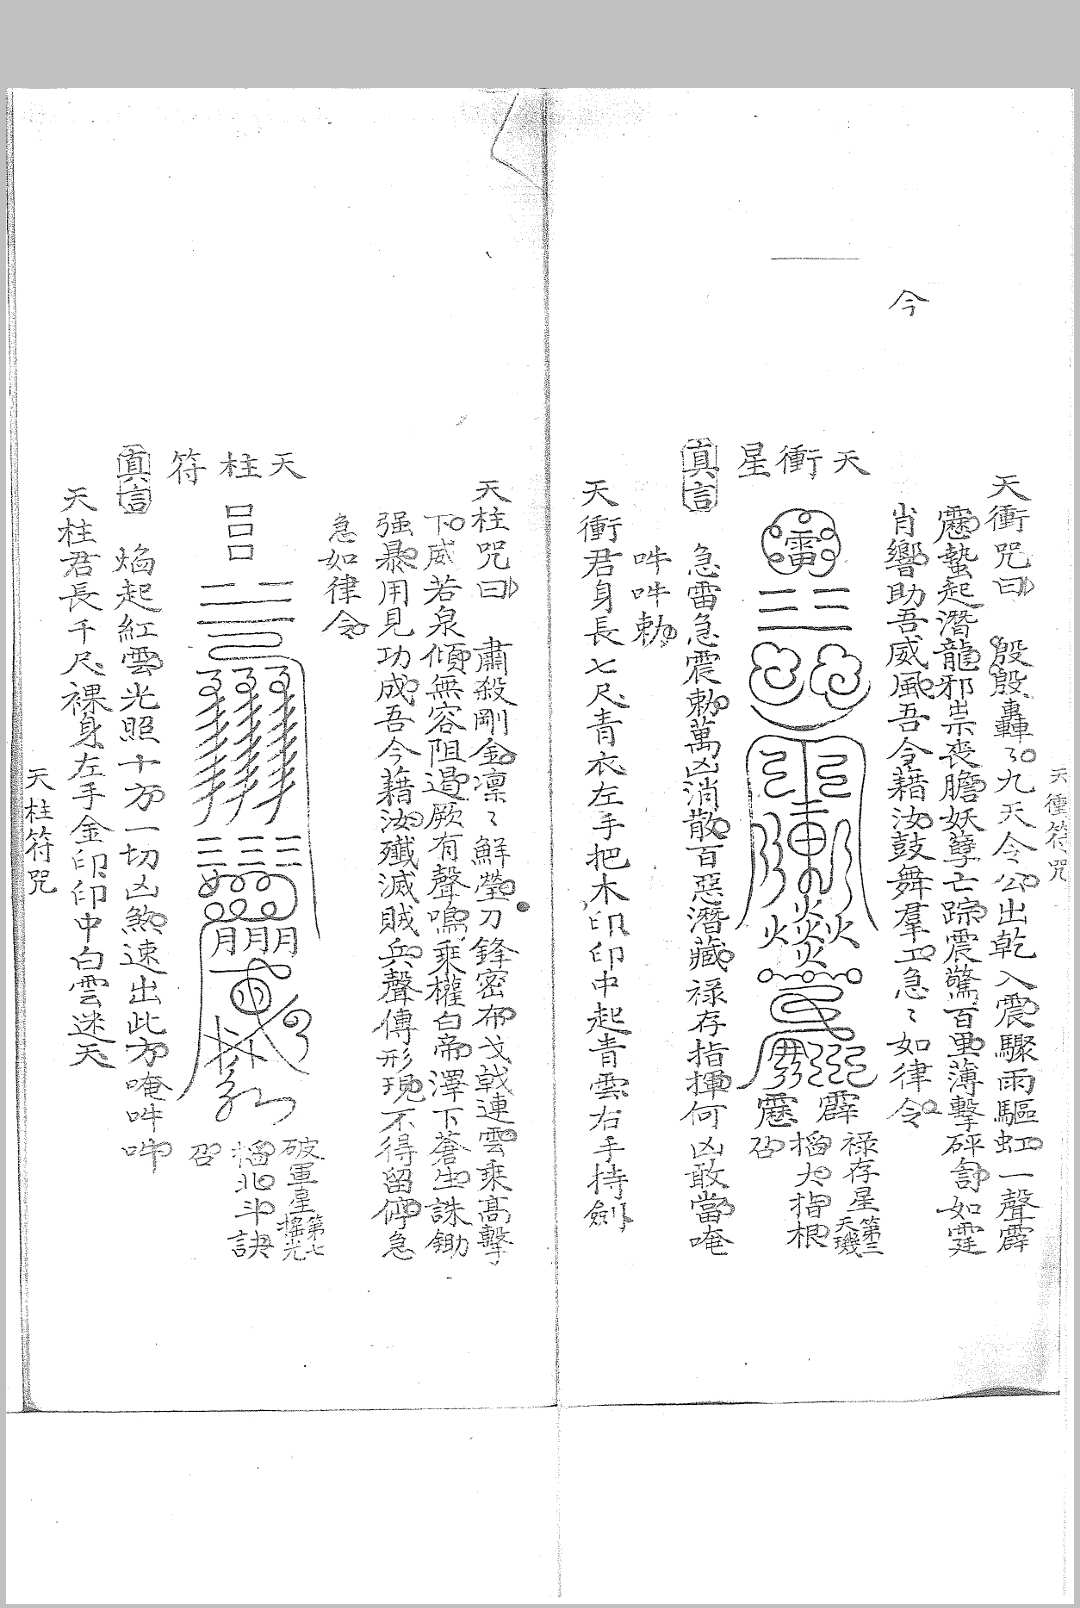 天衝符咒
天衝咒曰 殷殷轟々九天令公出乾入震驟雨驅虹一聲霹
靂蟄起潛龍邪祟丧膽妖孽亡踪震驚百里薄擊砰訇如霆
肖響助吾威風吾令藉汝鼓舞羣工急々如律令
今
天衝星
雷
霹靂
祿存星第三天璣
搯大指根
召
真言 急雷急震勅萬凶消散百惡潛藏祿存指揮何凶敢當唵
吽吽勅
天衝君身長七尺青衣左手把木印印中起青雲右手持劍
天柱咒曰 肅殺剛金凛々鮮瑩刀鋒密布戈戟連雲乘高擊
下威若泉傾無容阻遏厥有聲鳴乘權白帝澤下蒼生誅鋤
强暴用見功成吾今藉汝殲滅賊兵聲傳形現不得留停急
急如律令
天柱符
破軍星第七搖光
搯北斗訣
召
真言 焰起紅雲光照十方一切凶煞速出此方唵吽吽
天柱君長千尺裸身左手金印印中白雲迷天
天柱符咒